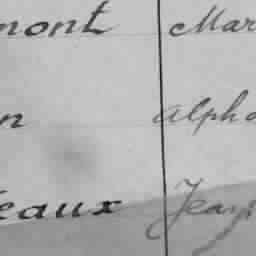 mont Mar
n alpho
eaux Jean